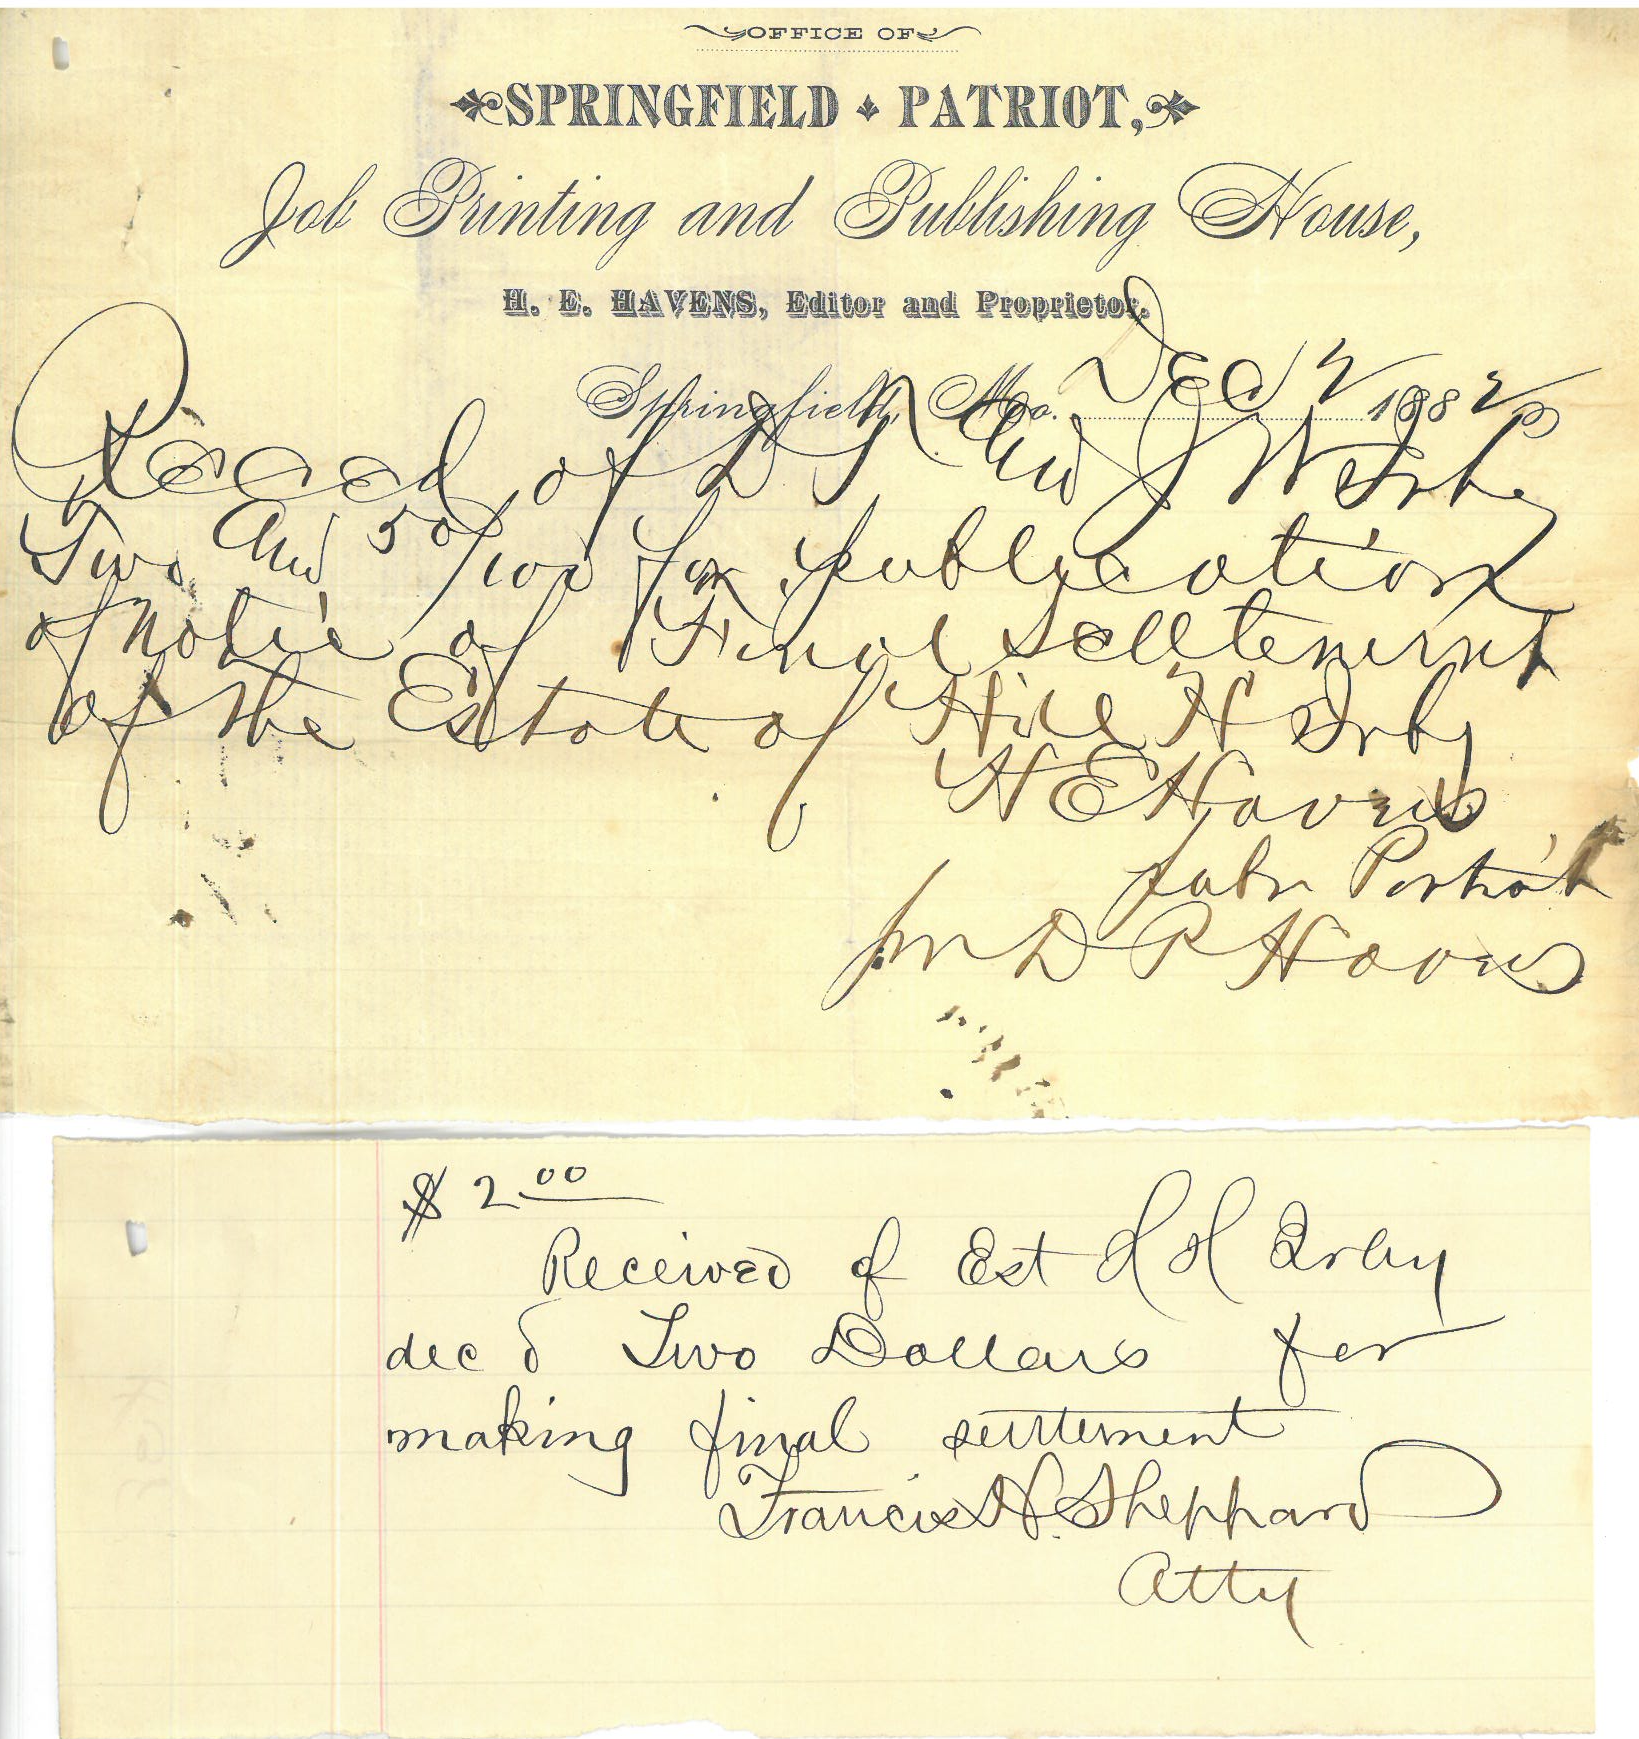 OFFICE OF
SPRINGFIELD PATRIOT,
Job Printing and Publishing House,
H. E. HAVENS, Editor and Proprietor.
Springfield, Mo. Dec 2 1882
Recd of D and J W Irby
Two and 50/100 for publication
of Notice of Final Settlement
of the Estate of Hill H Irby
H E Havens
pubr Patriot
pr D P Havens
$ 2.00
Received of Est H H Irby
decd Two Dollars for
making final settlement
Francis H. Sheppard
Atty